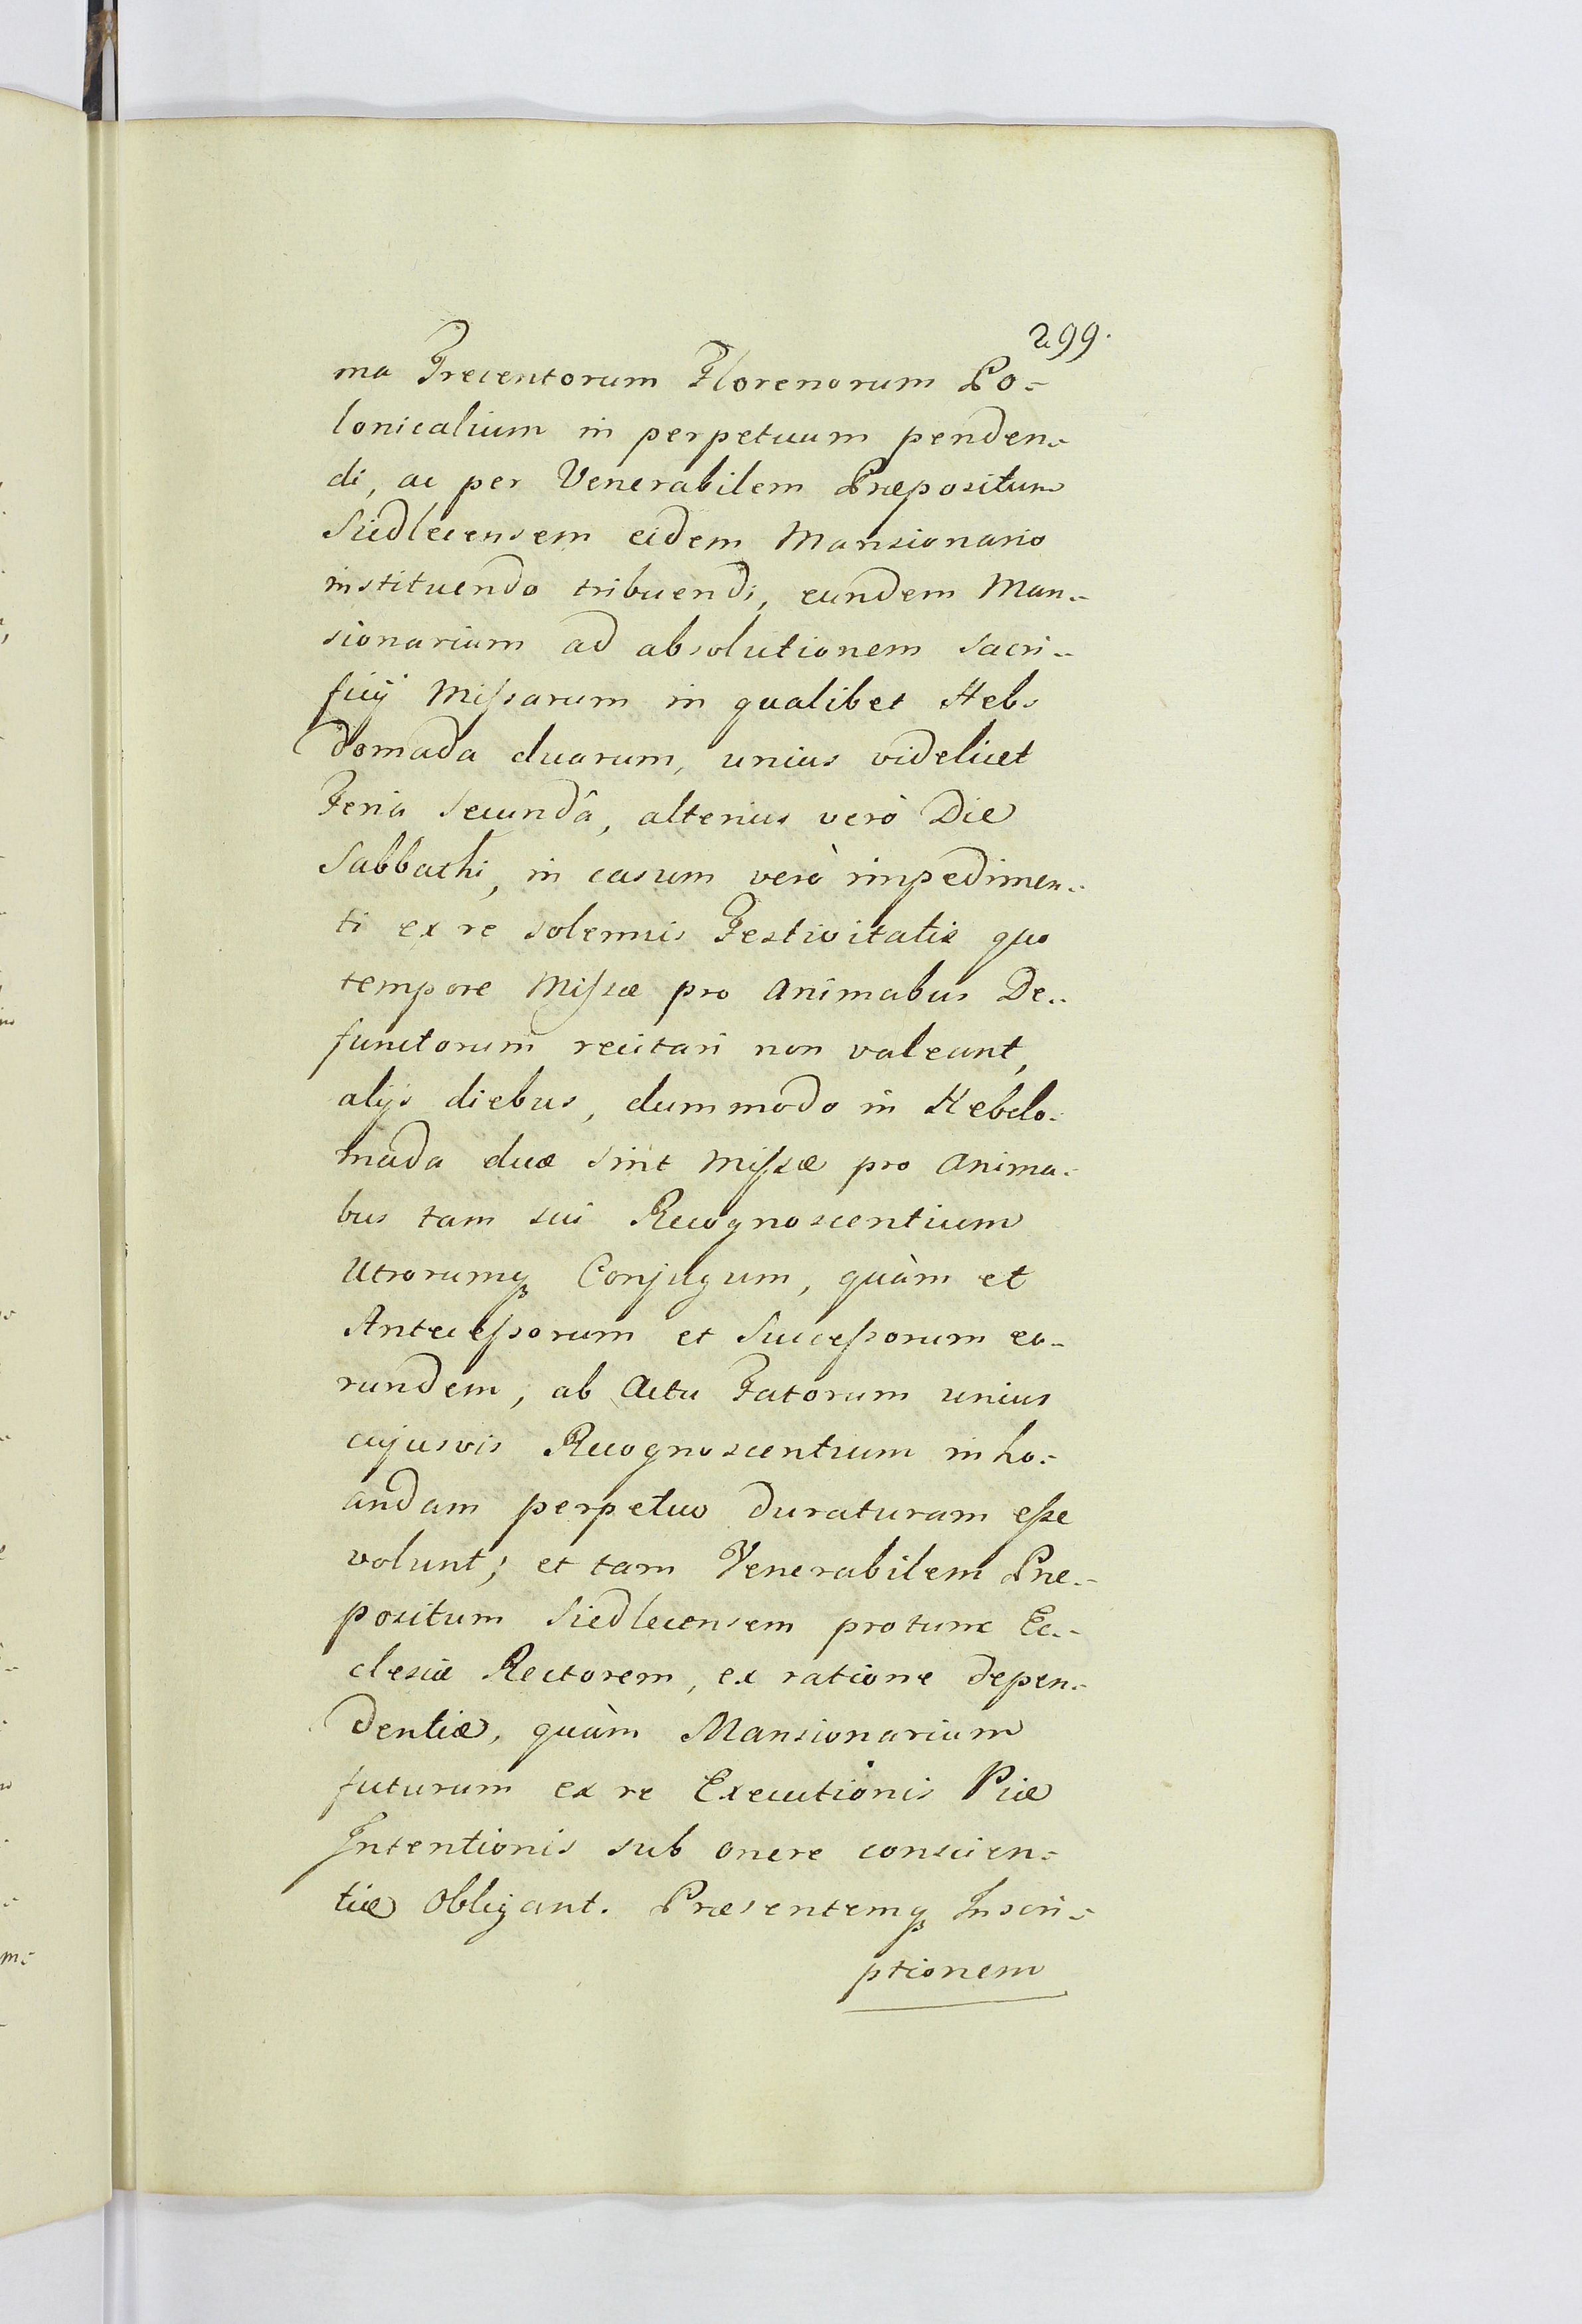 299.
ma Trecentorum Florenorum Po=
lonicalium in perpetuum penden=
di, ac per Venerabilem Præpositum
Siedlecensem eidem Mansionario
instituendo tribuendi, eundem Man=
sionarium ad absolutionem sacri=
ficij Missarum in qualibet Heb=
domada duarum, unius videlicet
Feria Secundâ, alterius verò Die
Sabbathi, in casum verò impedimen=
ti ex re solennis Festivitatis quo
tempore Missæ pro Animabus De=
functorum recitari non valeant,
alijs diebus, dummodo in Hebdo=
mada duæ sint Missæ pro Anima=
bus tam sui Recognoscentium
Utrorumq₃ Conjugum, quàm et
Antecessorum et Successorum eo=
rundem, ab Actu Fatorum unius
cujusvis Recognoscentium inho=
andam perpetuo duraturam esse
volunt; et tam Venerabilem Præ=
positum Siedlecensem protunc Ec=
clesiæ Rectorem, ex ratione depen=
dentiæ, quàm Mansionarium
futurum ex re Executionis Piæ
Intentionis sub onere conscien=
tiæ obligant. Præsentemq₃ Inscri=
ptionem